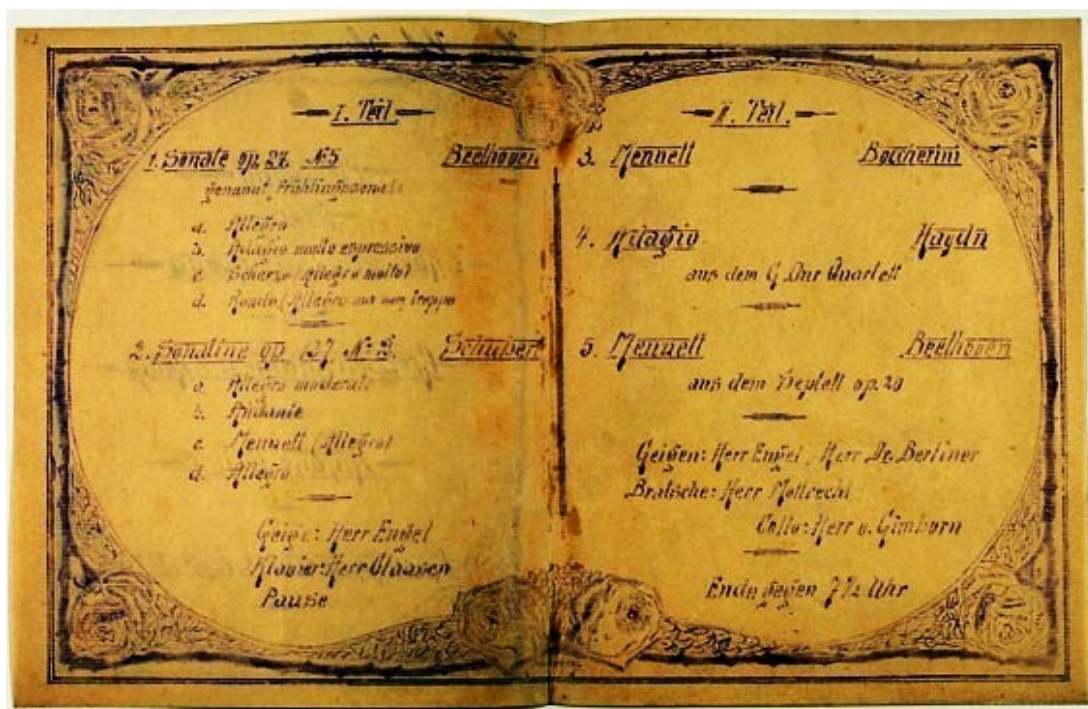 I. Teil.
1. Sonate op. 27. № 5 Beethoven
genannt Frühlingssonate
a. Allegro
b. Adagio molto espressivo
c. Scherzo (Allegro molto)
d. Rondo (Allegro ma non troppo
2. Sonatine op. 137 № 2. Schubert
a. Allegro moderato
b. Andante
c. Menuett (Allegro)
d. Allegro
Geige: Herr Engel
Klavier: Herr Claassen
Pause
II. Teil.
3. Menuett Boccherini
4. Adagio Haydn
aus dem G Dur Quartett
5. Menuett Beethoven
aus dem Septett op. 20
Geigen: Herr Engel, Herr Dr. Berliner
Bratsche: Herr Mollrecht
Cello: Herr v. Gimborn
Ende gegen 7½ Uhr